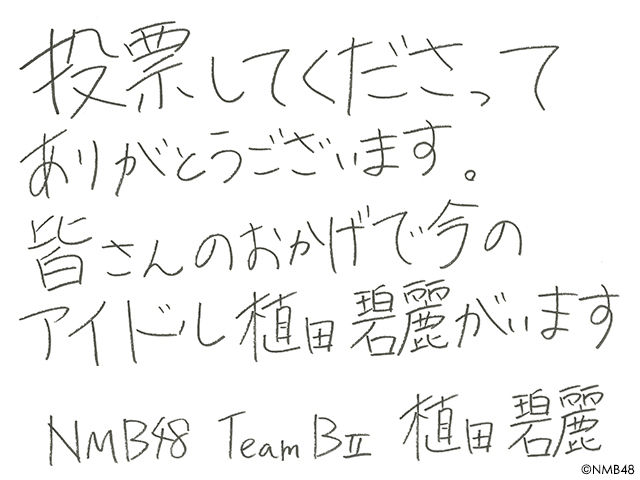 投票してくださって
ありがとうございます。
皆さんのおかげで今の
アイドル植田碧麗がいます
NMB48 Team BⅡ 植田碧麗
©NMB48